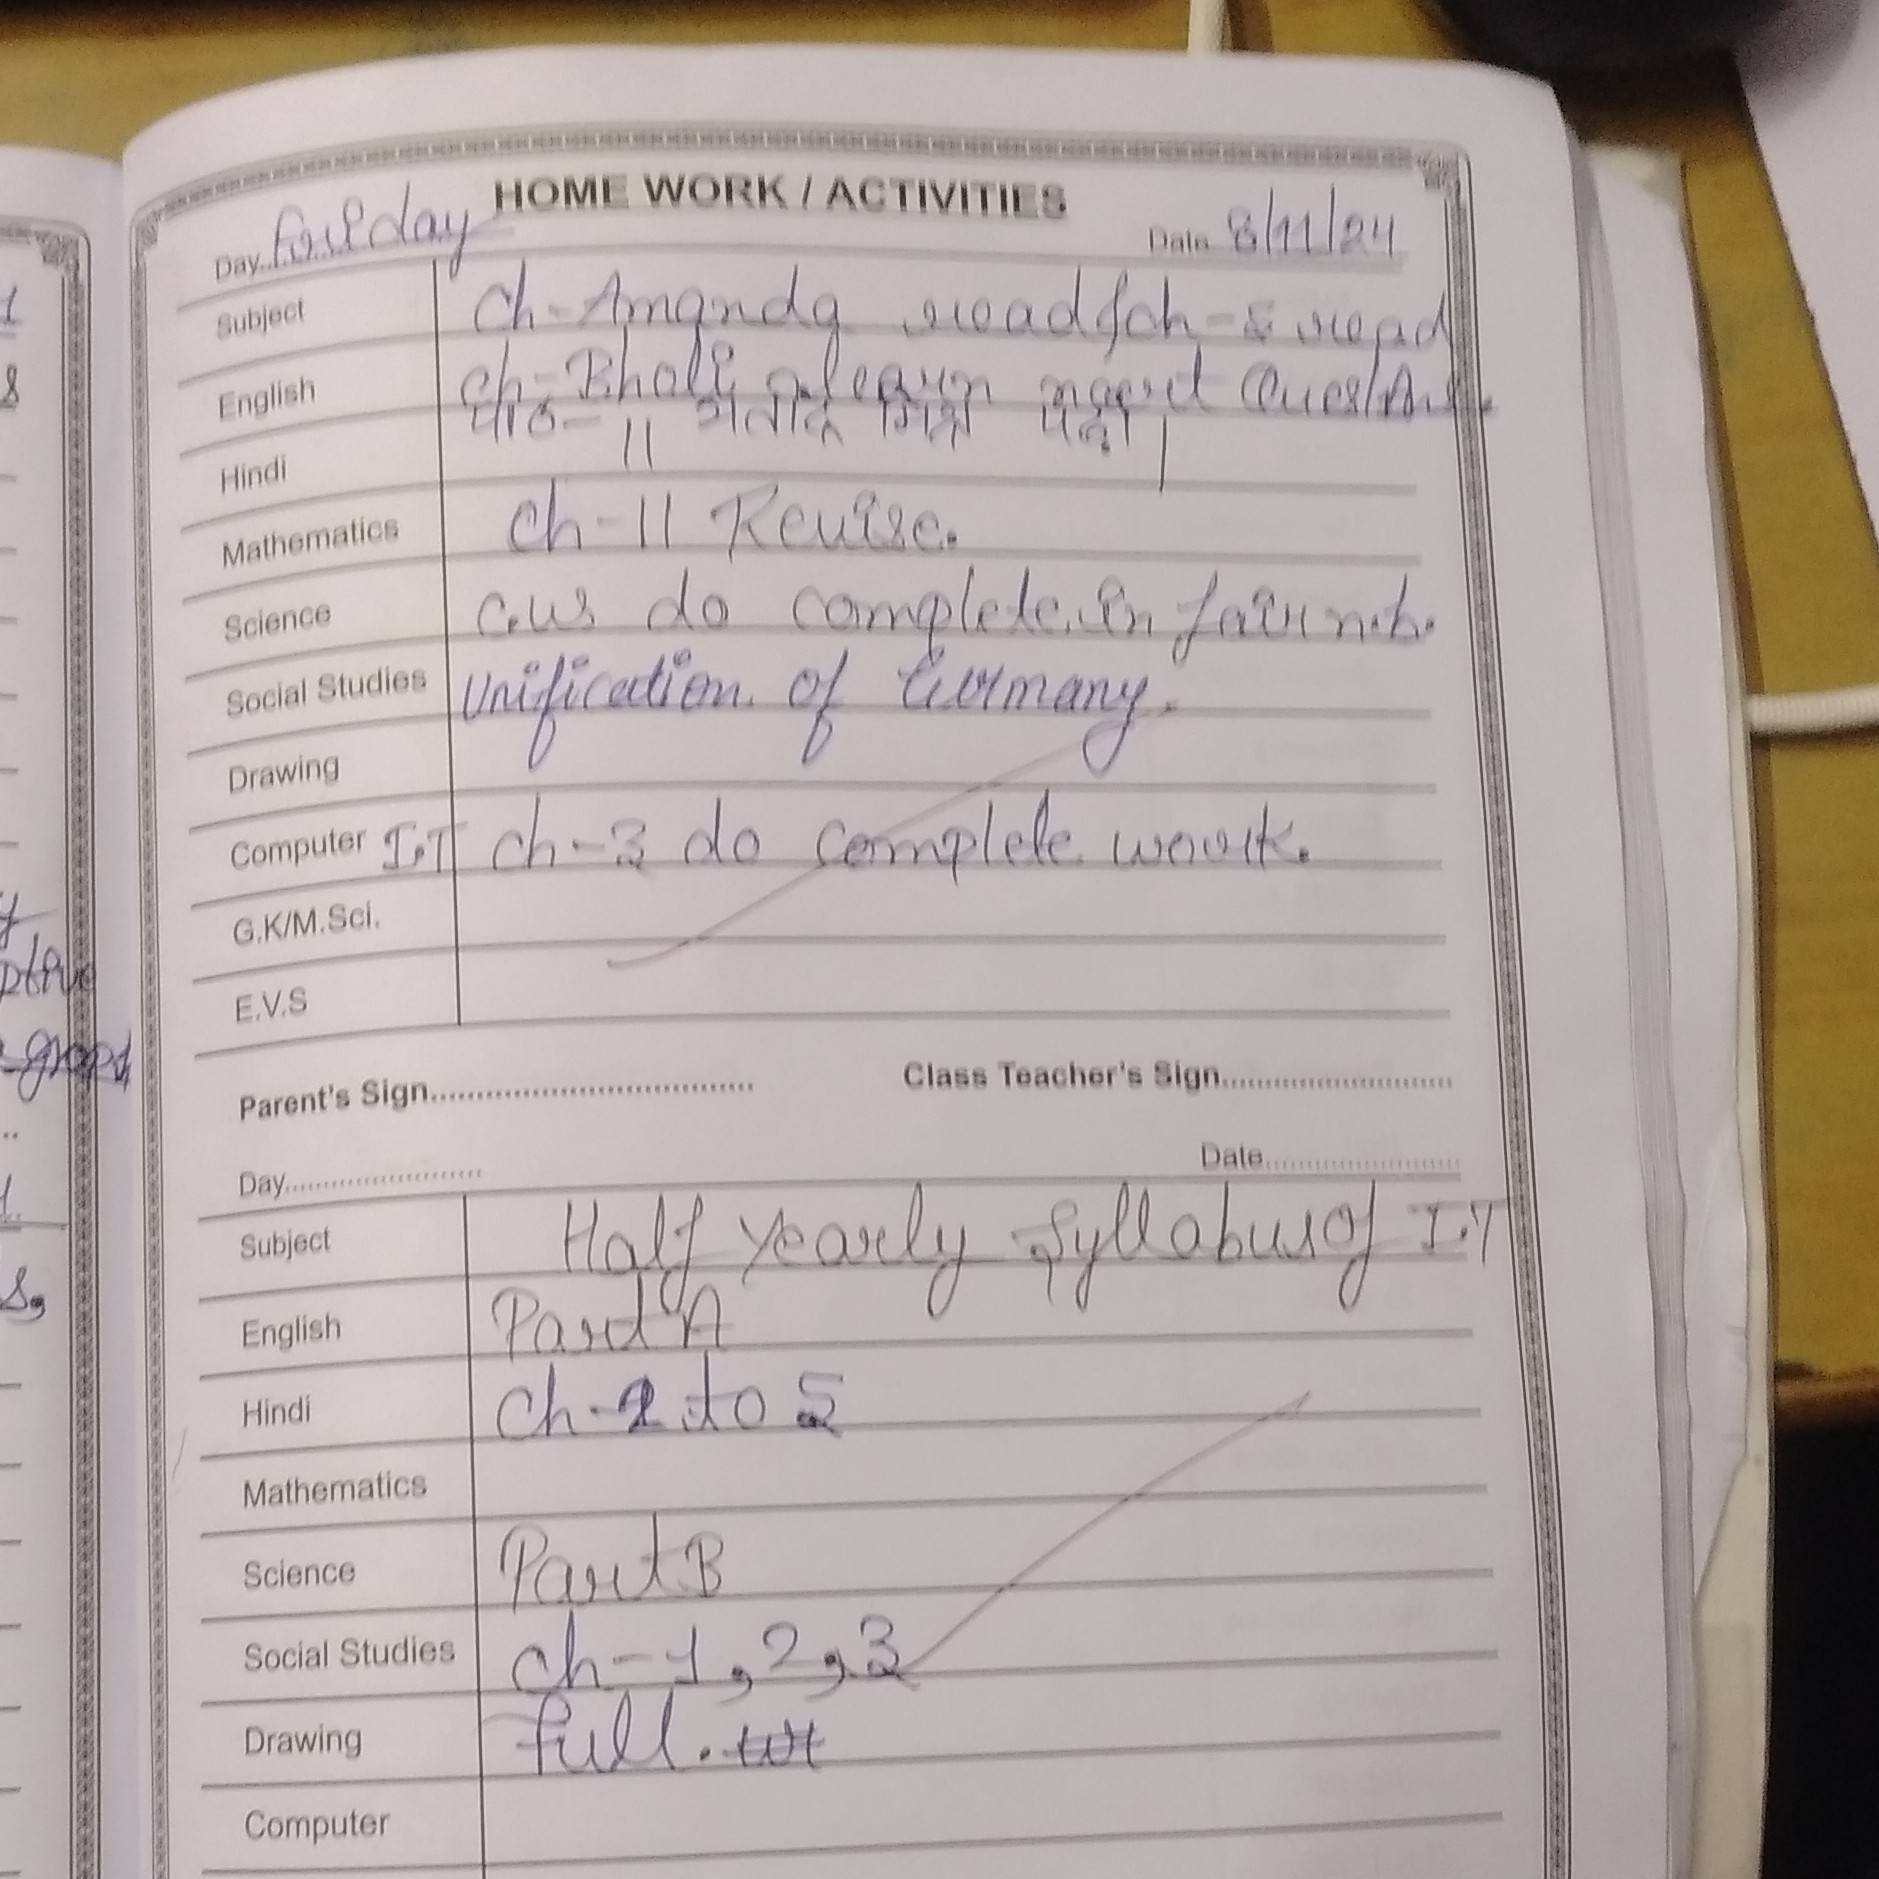 HOME WORK / ACTIVITIES
Day.. Friday Date 8/11/24
Subject Ch-Amanda read & ch-5 read
English Ch-Bholi learn Question
Hindi पाठ-11 पढ़ो।
Mathematics Ch-11 Revise.
Science C.W do complete in fair n.b.
Social Studies Unification of Germany.
Drawing
Computer I.T Ch-3 do complete work.
G.K/M.Sci.
E.V.S
Parent's Sign.............. Class Teacher's Sign..............
Day.............. Date..............
Subject Half Yearly Syllabus of I.T
English Part A
Hindi Ch-2 to 5
Mathematics
Science Part B
Social Studies Ch-1, 2, 3
Drawing full.
Computer